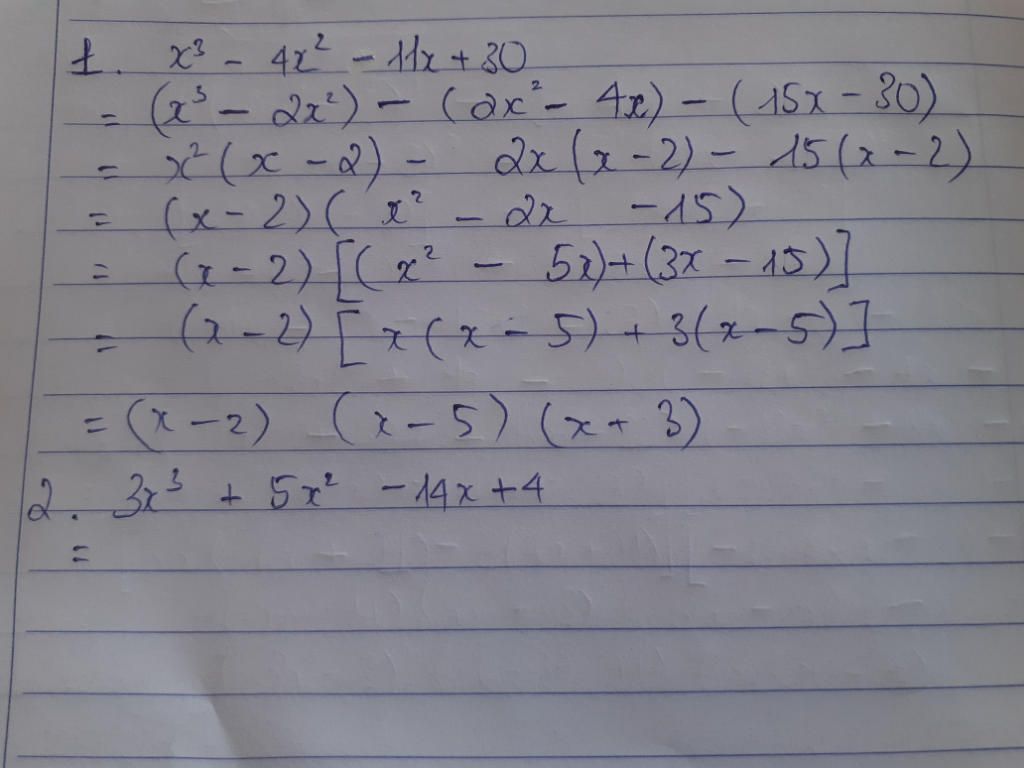 1. x³ - 4x² - 11x + 30
= (x³ - 2x²) - (2x² - 4x) - (15x - 30)
= x²(x - 2) - 2x(x - 2) - 15(x - 2)
= (x - 2)(x² - 2x - 15)
= (x - 2)[(x² - 5x) + (3x - 15)]
= (x - 2)[x(x - 5) + 3(x - 5)]
= (x - 2) (x - 5) (x + 3)
2. 3x³ + 5x² - 14x + 4
=